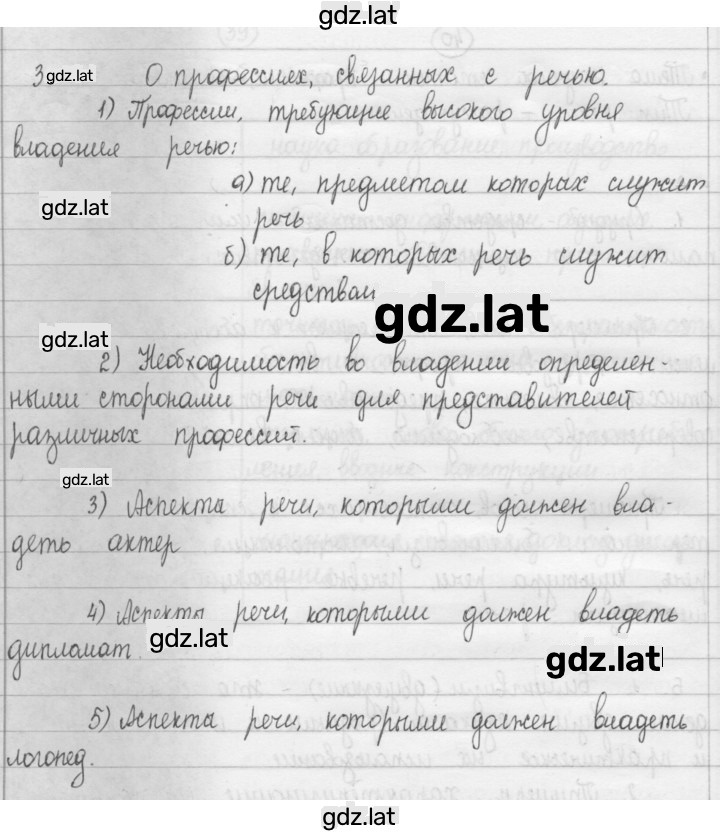 gdz.lat
3 gdz.lat О профессиях, связанных с речью.
1) Профессии, требующие высокого уровня
владения речью:
а) те, предметом которых служит
gdz.lat
речь
б) те, в которых речь служит
средствам
gdz.lat
gdz.lat
2) Необходимость во владении определен-
ными сторонами речи для представителей
различных профессий.
gdz.lat
3) Аспекты речи, которыми должен вла-
деть актер
4) Аспекты речи, которыми должен владеть
gdz.lat
дипломат.
gdz.lat
5) Аспекты речи, которыми должен владеть
логопед.
gdz.lat